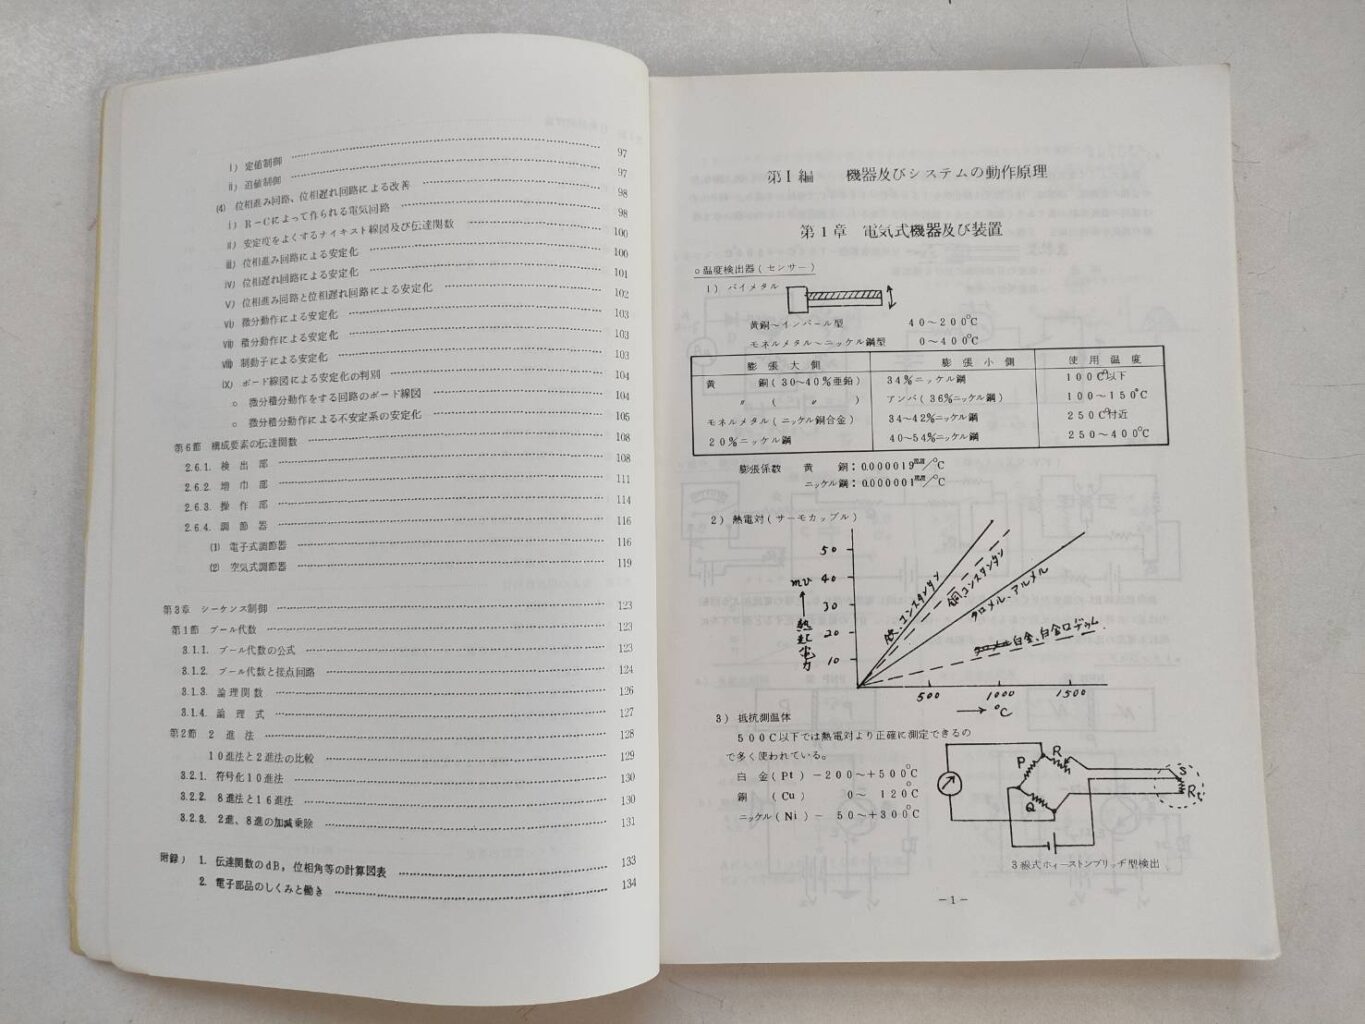 i) 定値制御 97
ii) 追値制御 97
(4) 位相進み回路、位相遅れ回路による改善 98
i) R－Cによって作られる電気回路 98
ii) 安定度をよくするナイキスト線図及び伝達関数 100
iii) 位相進み回路による安定化 100
iv) 位相遅れ回路による安定化 101
v) 位相進み回路と位相遅れ回路による安定化 102
vi) 微分動作による安定化 103
vii) 積分動作による安定化 103
viii) 制動子による安定化 103
ix) ボード線図による安定化の判別 104
○ 微分積分動作をする回路のボード線図 104
○ 微分積分動作による不安定系の安定化 105
第6節 構成要素の伝達関数 108
2.6.1. 検出部 108
2.6.2. 増巾部 111
2.6.3. 操作部 114
2.6.4. 調節器 116
(1) 電子式調節器 116
(2) 空気式調節器 119
第3章 シーケンス制御 123
第1節 ブール代数 123
3.1.1. ブール代数の公式 123
3.1.2. ブール代数と接点回路 124
3.1.3. 論理関数 126
3.1.4. 論理式 127
第2節 2進法 128
10進法と2進法の比較 129
3.2.1. 符号化10進法 130
3.2.2. 8進法と16進法 130
3.2.3. 2進、8進の加減乗除 131
附録) 1. 伝達関数のdB，位相角等の計算図表 133
2. 電子部品のしくみと働き 134
第1編 機器及びシステムの動作原理
第1章 電気式機器及び装置
○温度検出器(センサー)
1) バイメタル
黄銅～インバール型 40～200℃
モネルメタル～ニッケル鋼型 0～400℃
膨張大側 膨張小側 使用温度
黄銅(30～40%亜鉛) 34%ニッケル鋼 100℃以下
〃 ( 〃 ) アンバ(36%ニッケル鋼) 100～150℃
モネルメタル(ニッケル銅合金) 34～42%ニッケル鋼 250℃付近
20%ニッケル鋼 40～54%ニッケル鋼 250～400℃
膨張係数 黄銅：0.000019㎜/℃
ニッケル鋼：0.000001㎜/℃
2) 熱電対(サーモカップル)
50
mv 40
30
20
10
熱起電力
鉄、コンスタンタン
銅、コンスタンタン
クロメル、アルメル
白金、白金ロヂウム
500 1000 1500
℃
3) 抵抗測温体
500C以下では熱電対より正確に測定できるの
で多く使われている。
白金(Pt) －200～＋500℃
銅 (Cu) 0～ 120℃
ニッケル(Ni) － 50～＋300℃
P R
Q
S
Rt
3線式ホィーストンブリッヂ型検出
－1－